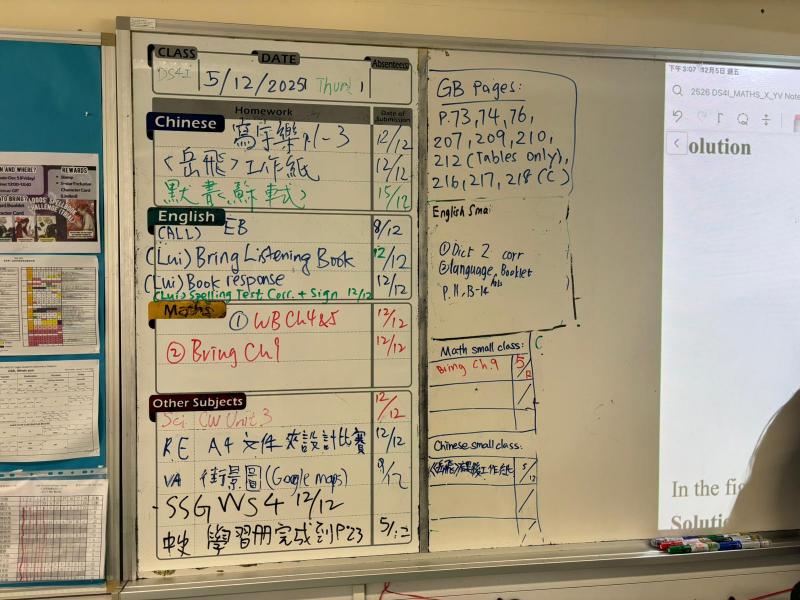 CLASS DATE Absentees
DS4I 5/12/2025 Thurs 1
Homework Date of Submission
Chinese 寫字樂 P.1-3 12/12
〈岳飛〉工作紙 12/12
默 蘇軾 15/12
English
(ALL) EB 8/12
(Lui) Bring Listening Book 12/12
(Lui) Book response 12/12
(Lui) Spelling Test Corr. + Sign 12/12
Maths
① WB Ch4&5 12/12
② Bring Ch9 12/12
Other Subjects
Sci CW Unit 3 12/12
RE A4 文件夾設計比賽 12/12
VA 街景圖 (Google maps) 9/12
SSG WS 4 12/12
中史 學習冊完成到P23 5/12
GB Pages:
P.73, 74, 76,
207, 209, 210,
212 (Tables only),
216, 217, 218 (C)
English Smal
① Dict 2 corr
② language Booklet
P. 11, 13-14
Math small class: C
Bring Ch.9 5/12
Chinese small class:
工作紙 5/12
下午3:07 12月5日 週五
2526 DS4I_MATHS_X_YV Note
olution
In the fig
Solutio
REWARDS